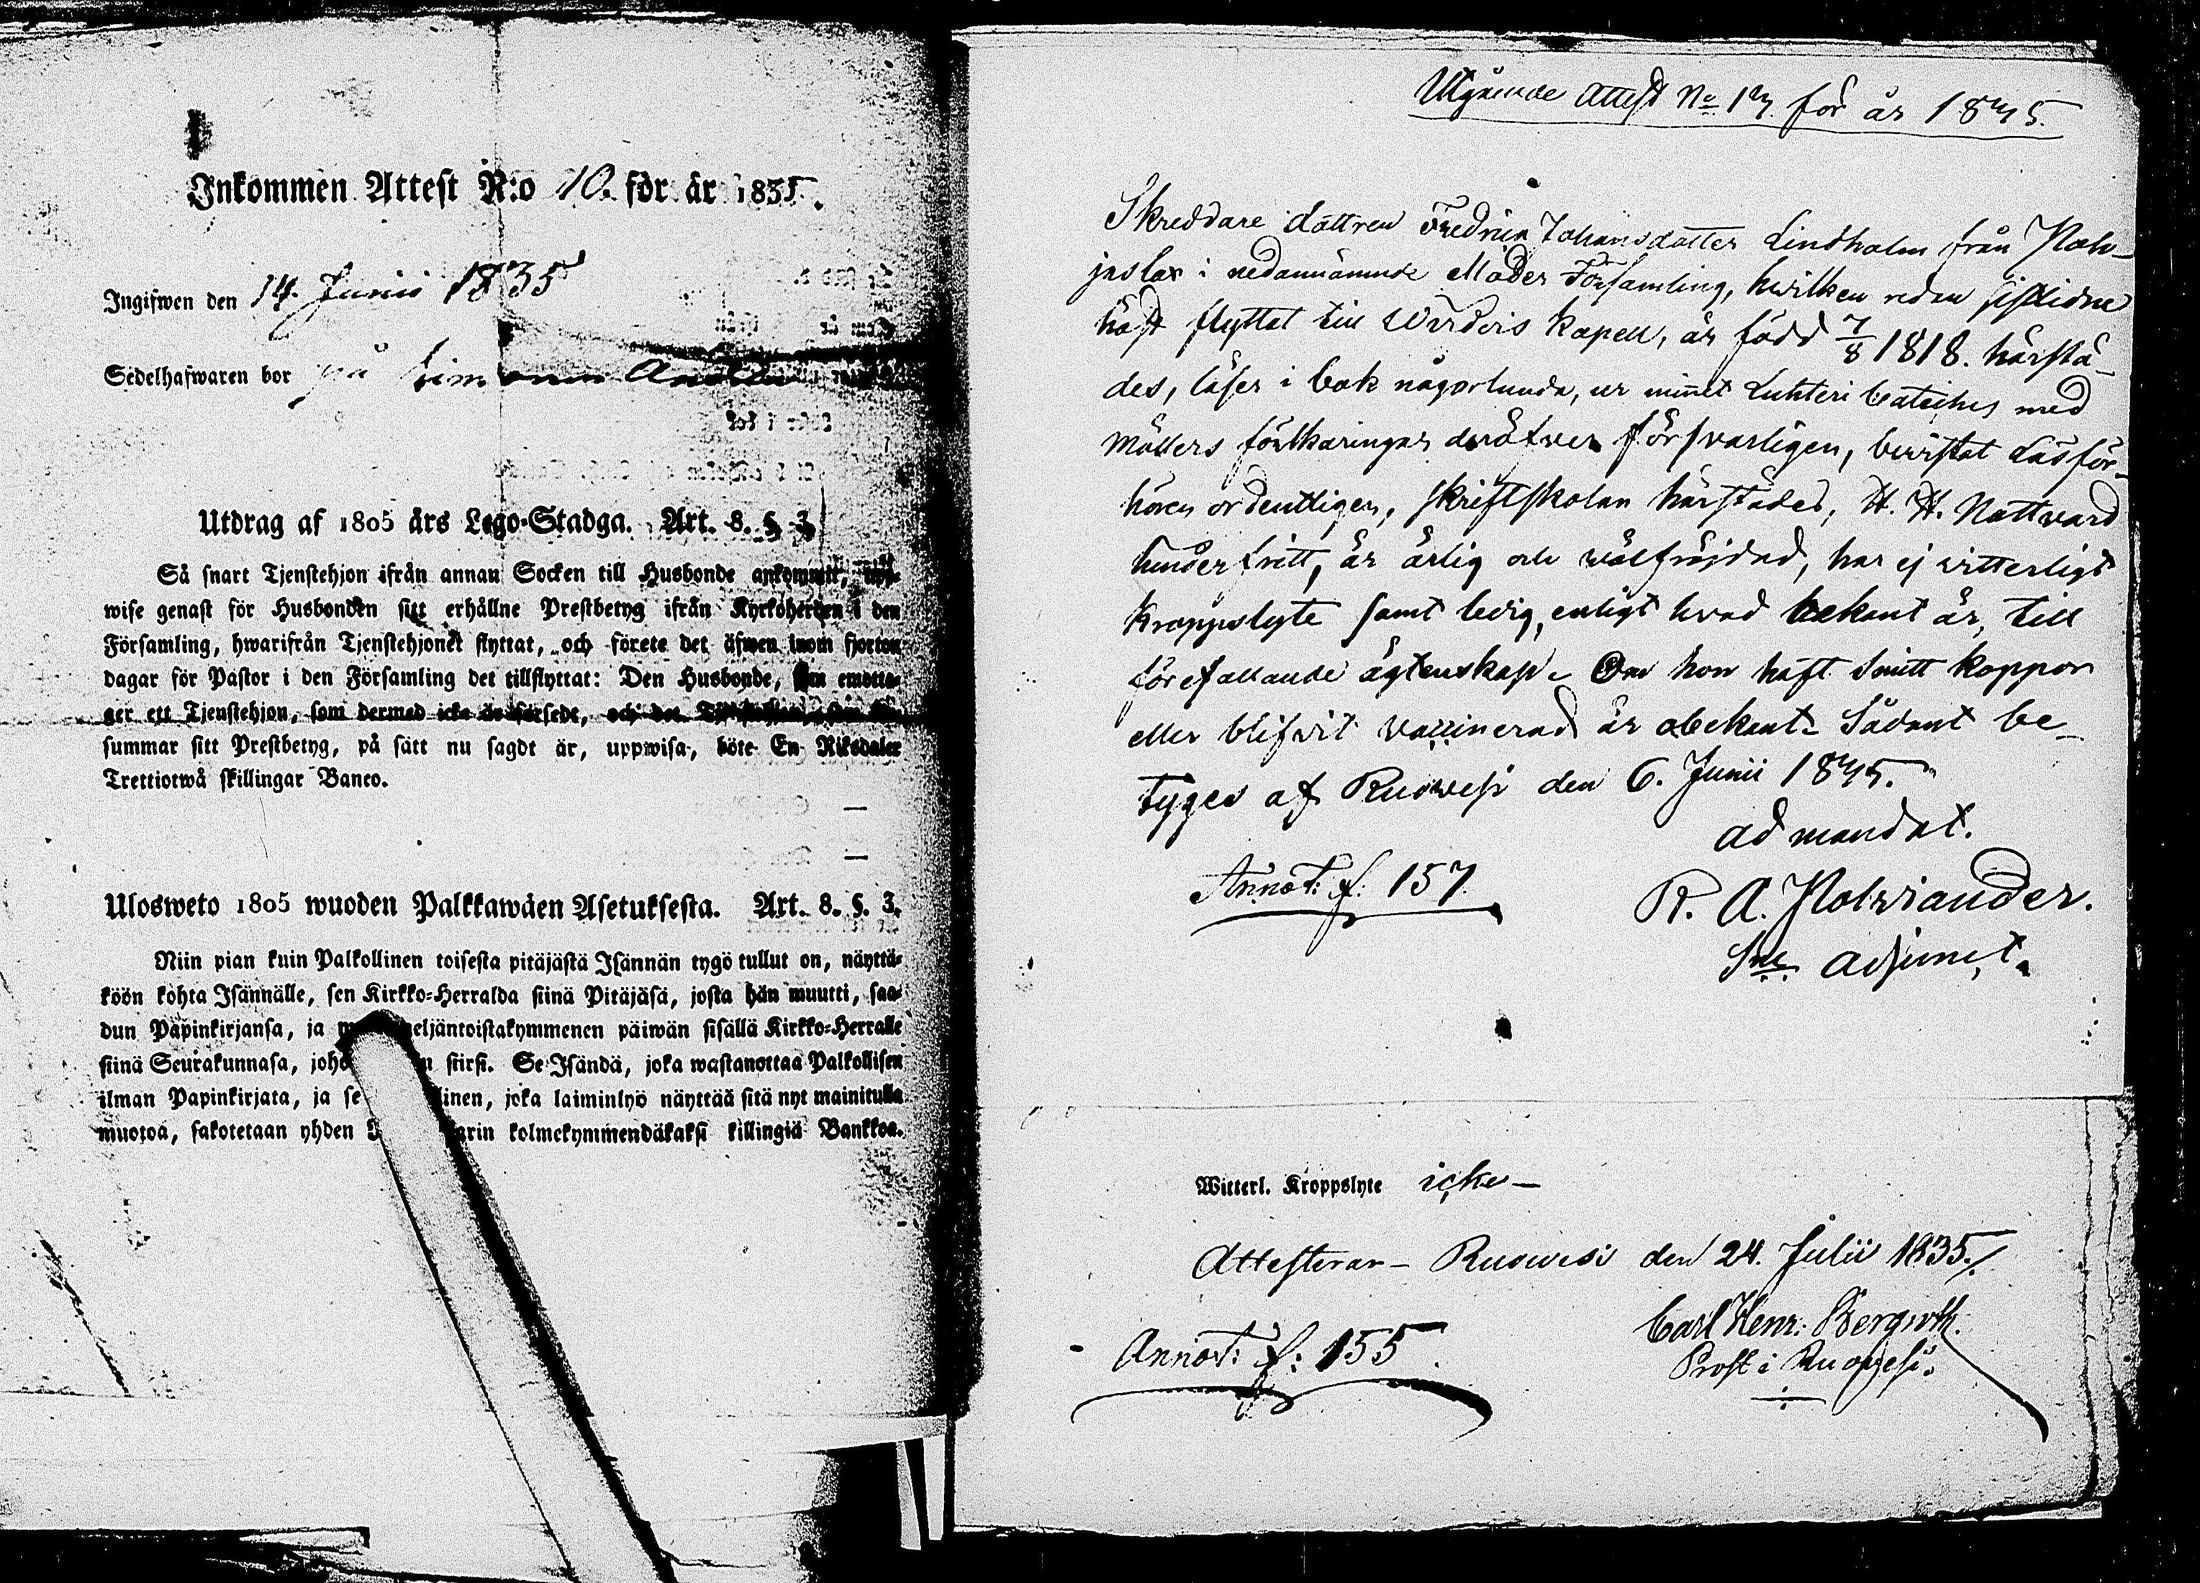 Inkommen Attest N:o 10. för år 1835.
Ingifwen den 14. Junii 1835
Sedelhafwaren bor på
Utdrag af 1805 års Lego-Stadga. Art. 8. §. 3.
Så snart Tjenstehjon ifrån annan Socken till Husbonde ankommit, upp-
wise genast för Husbonden sitt erhållne Prestbetyg ifrån Kyrkoherden i den
Församling, hwarifrån Tjenstehjonet flyttat, och förete det äfwen inom fjorton
dagar för Pastor i den Församling det tillflyttat: Den Husbonde, som emotta-
ger ett Tjenstehjon, som dermed icke är försedt, och det
summar sitt Prestbetyg, på sätt nu sagdt är, uppwisa, böte En Riksdaler
Trettiotwå skillingar Banco.
Ulosweto 1805 wuoden Palkkawäen Asetuksesta. Art. 8. §. 3.
Niin pian kuin Palkollinen toisesta pitäjästä Isännän tygö tullut on, näyttä-
köön kohta Isännälle, sen Kirkko-Herralda siinä Pitäjäsä, josta hän muutti, saa-
dun Päpinkirjansa, ja eljäntoistakymmenen päiwän sisällä Kirkko-Herralle
siinä Seurakunnasa, joho n siirsi. Se Isändä, joka wastanottaa Palkollisen
ilman Papinkirjata, ja se linen, joka laiminlyö näyttää sitä nyt mainitulla
muotoa, sakotetaan yhden arin kolmekymmendäkaksi killingiä Bankkoa.
Utgående Attest No 17. för år 1835.
Skreddare dottren Fredrica Johansdotter Lindholm från Poh-
jaslax i nedannämnde Moder Församling, hwilken redan sistlidne
höst flyttat till Wirdois Kapell, är född 7/8 1818. härstä-
des, läser i bok någorlunda, ur minnet Lutheri Cateches med
Möllers förklaringar deröfver försvarligen, bevistat Läsför-
hören ordentligen, skriftskolan härstädes, H. H. Nattvard
hinderfritt, är ärlig och wälfräjdad, har ej witterligt
Kroppslyte samt ledig, enligt hvad bekant är, till
förefallande ägtenskap. Om hon haft Smitt koppor
eller blifvit vaccinerad är obekant. Sådant be-
tyges af Ruowesi den 6. Junii 1835.
ad mandat.
Annot: f: 157.
R. A. Polviander.
Sne adjunct.
Witterl. Kroppslyte icke –
Attesterar – Ruowesi den 24. Julii 1835./.
Annot: f: 155
Carl Henr: Bergroth.
Prost i Ruowesi.